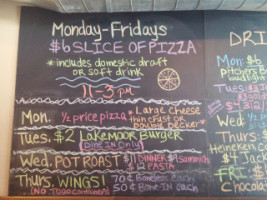 Monday-Fridays
$6 SLICE OF PIZZA
*includes domestic draft
or soft drink
11-3pm
Mon. ½ price pizza *Large Cheese
thin crust or
double decker*
Tues. $2 Lakemoor Burger
Dine In Only
Wed. POT ROAST $11 DINNER $9 Sandwich
$12 PASTA
Thurs. WINGS! 70¢ Boneless each
(NO TOGO 50¢ Bone-In each
DRI
Mon: $6
Pitchers
Tues: $3
Wed: $
Heineken
Thurs: $
+ Jack
FRI: $
Chocola